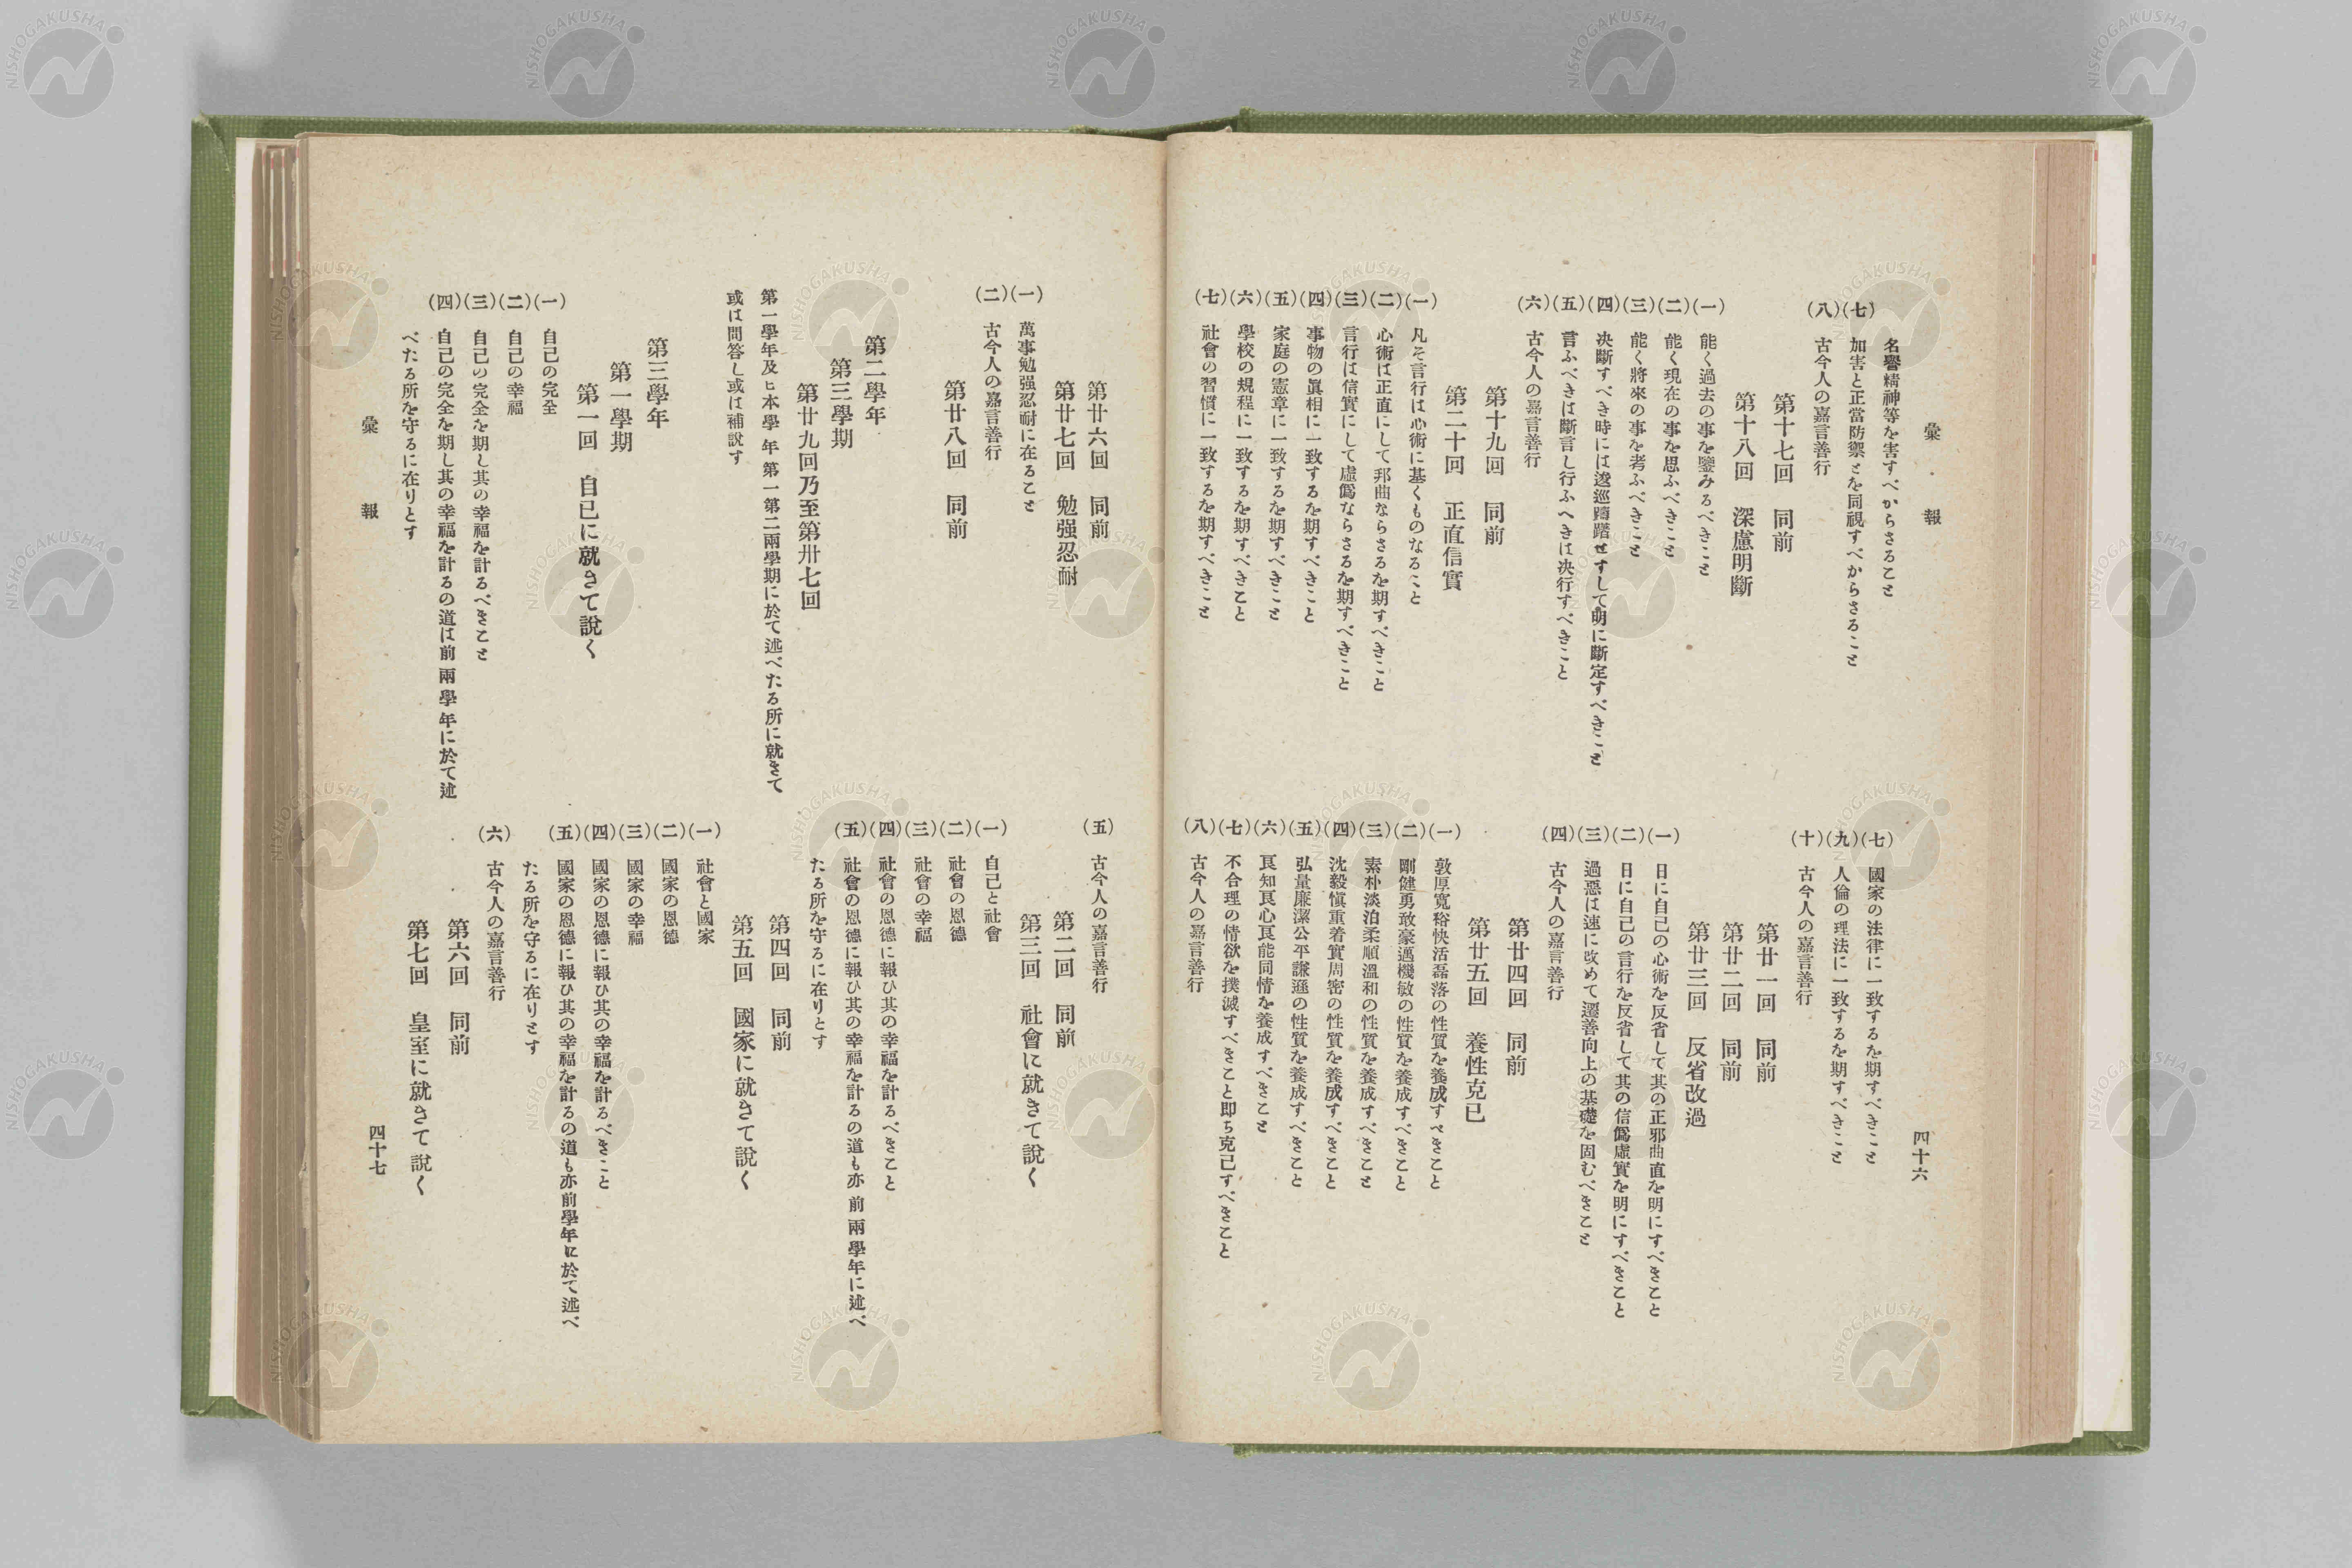 彙報
四十六
名譽精神等を害すべからさること
(七) 加害と正當防禦とを同視すべからさること
(八) 古今人の嘉言善行
第十七回 同前
第十八回 深慮明斷
(一) 能く過去の事を鑒みるべきこと
(二) 能く現在の事を思ふべきこと
(三) 能く將來の事を考ふべきこと
(四) 决斷すべき時には逡巡躊躇せすして明に斷定すべきこと
(五) 言ふべきは斷言し行ふへきは决行すべきこと
(六) 古今人の嘉言善行
第十九回 同前
第二十回 正直信實
(一) 凡そ言行は心術に基くものなること
(二) 心術は正直にして邪曲ならさるを期すべきこと
(三) 言行は信實にして虛僞ならさるを期すべきこと
(四) 事物の眞相に一致するを期すべきこと
(五) 家庭の憲章に一致するを期すべきこと
(六) 學校の規程に一致するを期すべきこと
(七) 社會の習慣に一致するを期すべきこと
(七) 國家の法律に一致するを期すべきこと
(九) 人倫の理法に一致するを期すべきこと
(十) 古今人の嘉言善行
第廿一回 同前
第廿二回 同前
第廿三回 反省改過
(一) 日に自己の心術を反省して其の正邪曲直を明にすべきこと
(二) 日に自己の言行を反省して其の信僞虛實を明にすべきこと
(三) 過惡は速に改めて遷善向上の基礎を固むべきこと
(四) 古今人の嘉言善行
第廿四回 同前
第廿五回 養性克已
(一) 敦厚寬裕快活磊落の性質を養成すべきこと
(二) 剛健勇敢豪邁機敏の性質を養成すべきこと
(三) 素朴淡泊柔順溫和の性質を養成すべきこと
(四) 沈毅愼重着實周密の性質を養成すべきこと
(五) 弘量廉潔公平謙遜の性質を養成すべきこと
(六) 良知良心良能同情を養成すべきこと
(七) 不合理の情欲を撲滅すべきこと即ち克己すべきこと
(八) 古今人の嘉言善行
第廿六回 同前
第廿七回 勉强忍耐
(一) 萬事勉强忍耐に在ること
(二) 古今人の嘉言善行
第廿八回 同前
第二學年
第三學期
第廿九回乃至第卅七回
第一學年及ヒ本學年第一第二兩學期に於て述べたる所に就きて
或は問答し或は補說す
第三學年
第一學期
第一回 自已に就きて說く
(一) 自己の完全
(二) 自己の幸福
(三) 自己の完全を期し其の幸福を計るべきこと
(四) 自己の完全を期し其の幸福を計るの道は前兩學年に於て述
べたる所を守るに在りとす
(五) 古今人の嘉言善行
第二回 同前
第三回 社會に就きて說く
(一) 自己と社會
(二) 社會の恩德
(三) 社會の幸福
(四) 社會の恩德に報ひ其の幸福を計るべきこと
(五) 社會の恩德に報ひ其の幸福を計るの道も亦前兩學年に述べ
たる所を守るに在りとす
第四回 同前
第五回 國家に就きて說く
(一) 社會と國家
(二) 國家の恩德
(三) 國家の幸福
(四) 國家の恩德に報ひ其の幸福を計るべきこと
(五) 國家の恩德に報ひ其の幸福を計るの道も亦前學年に於て述べ
たる所を守るに在りとす
(六) 古今人の嘉言善行
第六回 同前
第七回 皇室に就きて說く
彙報
四十七
NISHOGAKUSHA